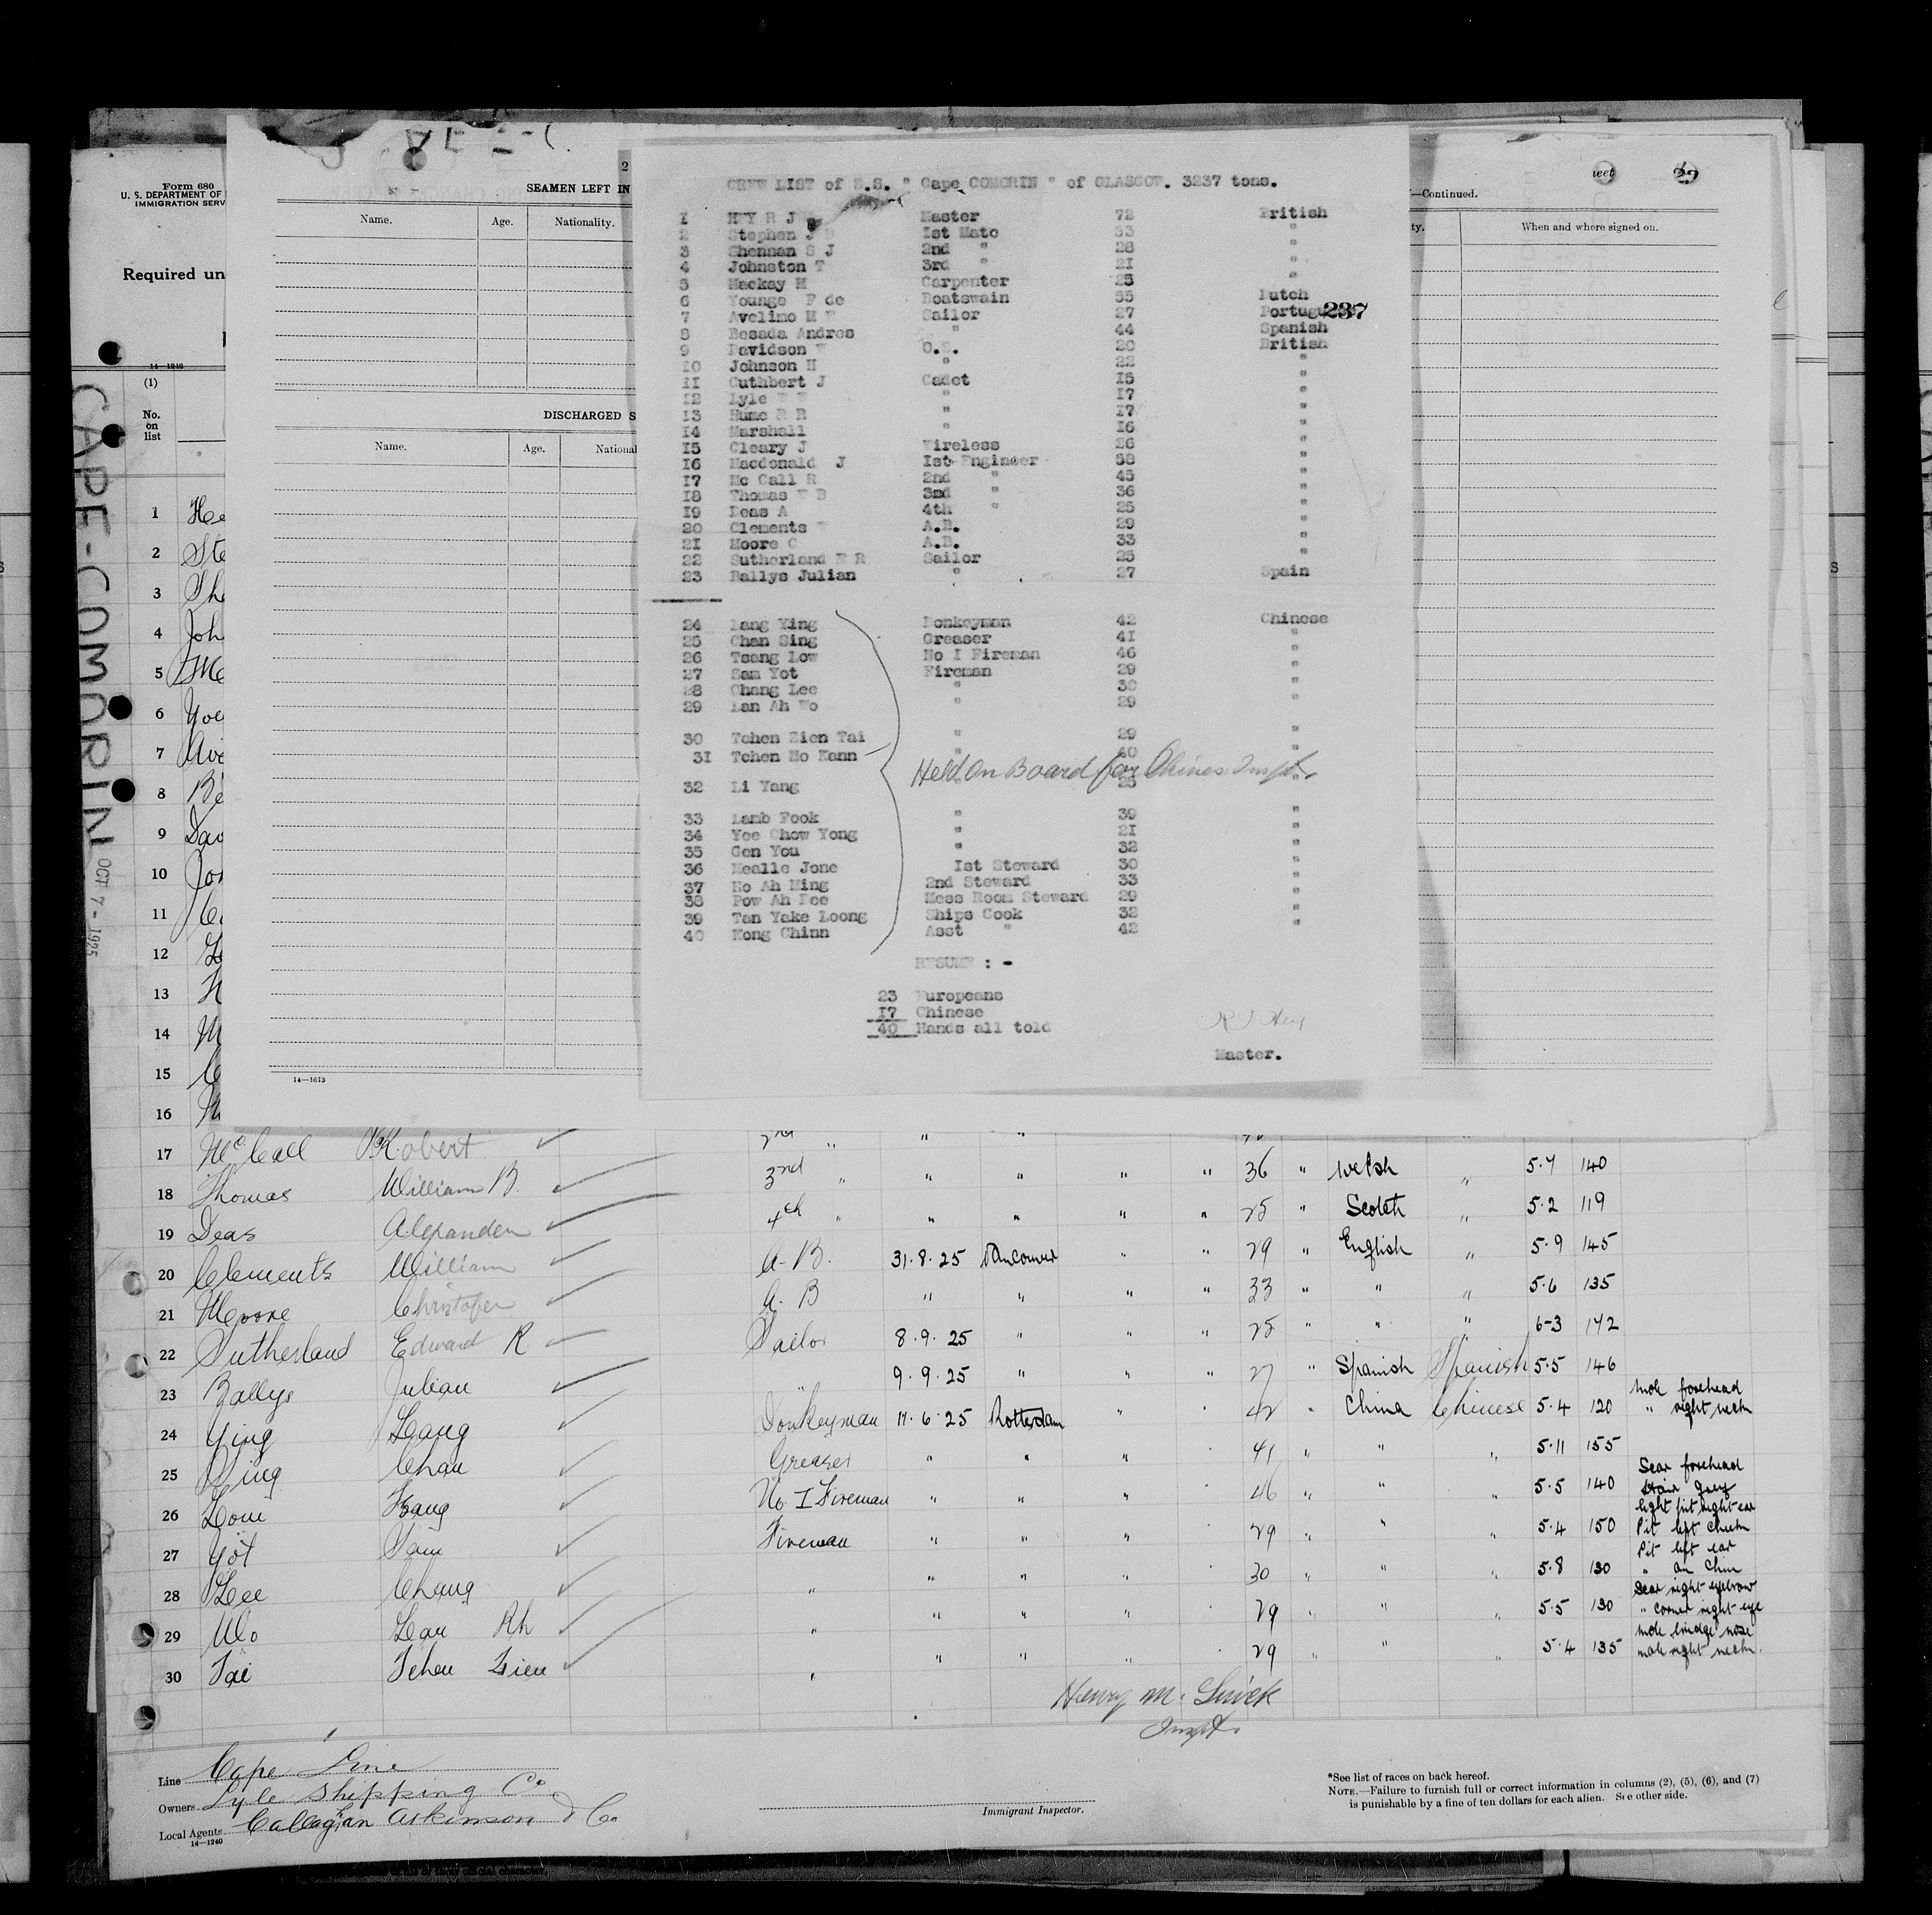 Form 680
U. S. DEPARTMENT OF
IMMIGRATION SERV
Required un
14—1240
(1)
No.
on
list
CAPE-COMORIN OCT 7-1925
2
SEAMEN LEFT IN
Name. Age. Nationality.
DISCHARGED S
Name. Age. National
14—1613
—Continued.
ty. When and where signed on.
CREW LIST of S.S. " Cape COMORIN " of GLASGOW. 3237 tons.
I HEY R J Master 72 British
2 Stephen J Ist Mate 53 "
3 Shennan S J 2nd " 28 "
4 Johnston T 3rd " 2I "
5 Mackay M Carpenter 25 "
6 Younge F de Boatswain 35 Dutch
7 Avelino M Sailor 27 Portugu
237
8 Besada Andres " 44 Spanish
9 Davidson W O.S. 20 British
I0 Johnson H " 22 "
II Cuthbert J Cadet I5 "
I2 Lyle " I7 "
I3 Hume R R " I7 "
I4 Marshall " I6 "
I5 Cleary J Wireless 26 "
I6 Macdonald J Ist Engineer 58 "
I7 Mc Call R 2nd " 45 "
I8 Thomas W B 3nd " 36 "
I9 Deas A 4th " 25 "
20 Clements W A.B. 29 "
2I Moore C A.B. 33 "
22 Sutherland E R Sailor 25 "
23 Ballys Julian " 27 Spain
24 Lang Ying Donkeyman 42 Chinese
25 Chan Sing Greaser 4I "
26 Tsang Low No I Fireman 46 "
27 Sam Yot Fireman 29 "
28 Chang Lee " 30 "
29 Lan Ah Wo " 29 "
30 Tchen Zien Tai " 29 "
3I Tchen Mo Kann " 40 "
Held On Board for Chines Inspt.
32 Li Yang " 25 "
33 Lamb Fook " 39 "
34 Yee Chow Yong " 2I "
35 Gen You " 32 "
36 Mealle Jone Ist Steward 30 "
37 Ho Ah Ming 2nd Steward 33 "
38 Pow Ah Dee Mess Room Steward 29 "
39 Tan Yake Loong Ships Cook 32 "
40 Kong Chinn Asst " 42 "
RESUME : -
23 Europeans
I7 Chinese
40 Hands all told
R J Hey
Master.
1 He
2 Ste
3 She
4 Joh
5 Ma
6 Yo
7 Ave
8 Be
9 Dav
10 Jo
11 C
12 L
13 H
14 M
15 C
16 M
17 McCall Robert 2nd " " "
18 Thomas William B. 3rd " " " " " 36 " Welsh " 5.7 140
19 Deas Alexander 4th " " " " " 25 " Scotch " 5.2 119
20 Clements William A.B. 31.8.25 Vancouver " " 29 " English " 5.9 145
21 Moore Christofer A.B " " " " 33 " " " 5.6 135
22 Sutherland Edward R Sailor 8.9.25 " " " 25 " " " 6-3 172
23 Ballys Julian " 9.9.25 " " " 27 " Spanish Spanish 5.5 146
24 Ying Lang Donkeyman 11.6.25 Rotterdam " " 42 " China Chinese 5.4 120 mole forehead " right neck
25 Sing Chan Greaser " " " " 41 " " " 5.11 155
26 Low Tsang No. I Fireman " " " " 46 " " " 5.5 140 Scar forehead hair grey
27 Yot Sam Fireman " " " " 29 " " " 5.4 150 light pit right ear Pit left cheek
28 Lee Chang " " " " " 30 " " " 5.8 130 Pit left ear " on Chin
29 Wo Lan Ah " " " " " 29 " " " 5.5 130 Scar right eyebrow " corner right eye
30 Tai Tchen Zien " " " " " 29 " " " 5.4 135 mole bridge nose mole right neck.
Henry M.
Inspt.
Line Cape Line
Owners Lyle Shipping Co
Local Agents Callaghan Atkinson & Co
14—1240
Immigrant Inspector.
*See list of races on back hereof.
NOTE.—Failure to furnish full or correct information in columns (2), (5), (6), and (7)
is punishable by a fine of ten dollars for each alien. See other side.